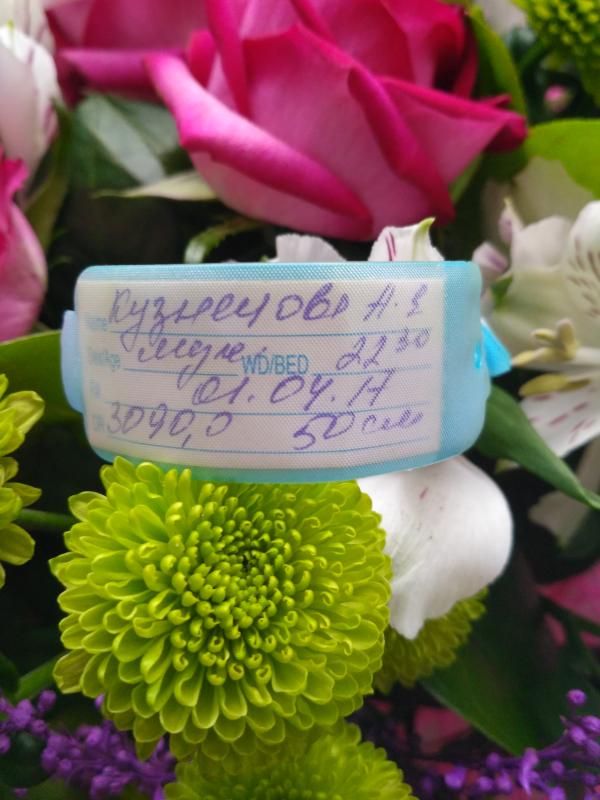 Name Кузнецова А.Я
Sex/Age муж. WD/BED 22 30
01.04.17
DR 3090,0 50 см